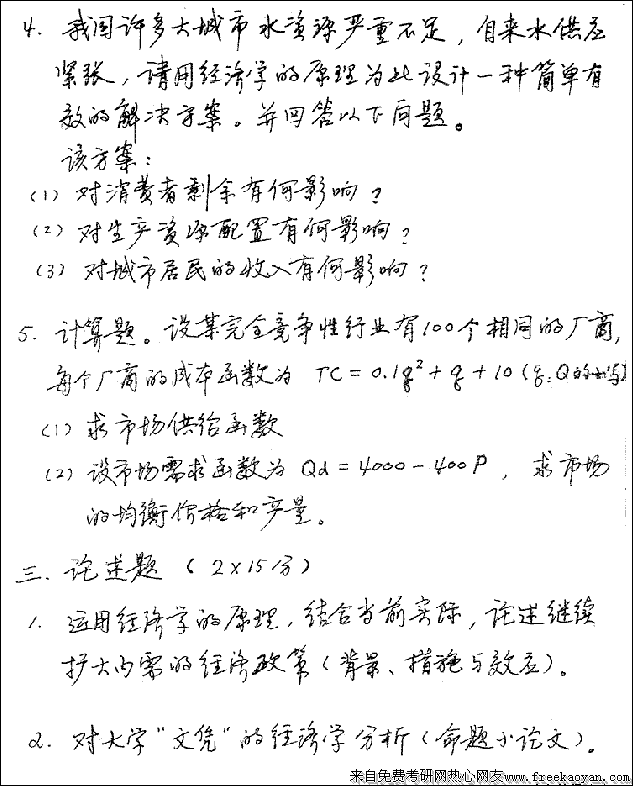 4. 我国许多大城市水资源严重不足，自来水供应
紧张，请用经济学的原理为此设计一种简单有
效的解决方案。并回答以下问题。
该方案：
(1) 对消费者剩余有何影响？
(2) 对生产资源配置有何影响？
(3) 对城市居民的收入有何影响？
5. 计算题。设某完全竞争性行业有100个相同的厂商，
每个厂商的成本函数为 TC = 0.1q²+q+10 (q: Q的
(1) 求市场供给函数
(2) 设市场需求函数为 Qd = 4000 - 400P，求市场
的均衡价格和产量。
三. 论述题 (2×15分)
1. 运用经济学的原理，结合当前实际，论述继续
扩大内需的经济政策（背景、措施与效应）。
2. 对大学"文凭"的经济学分析（命题小论文）。
来自免费考研网热心网友www.freekaoyan.com